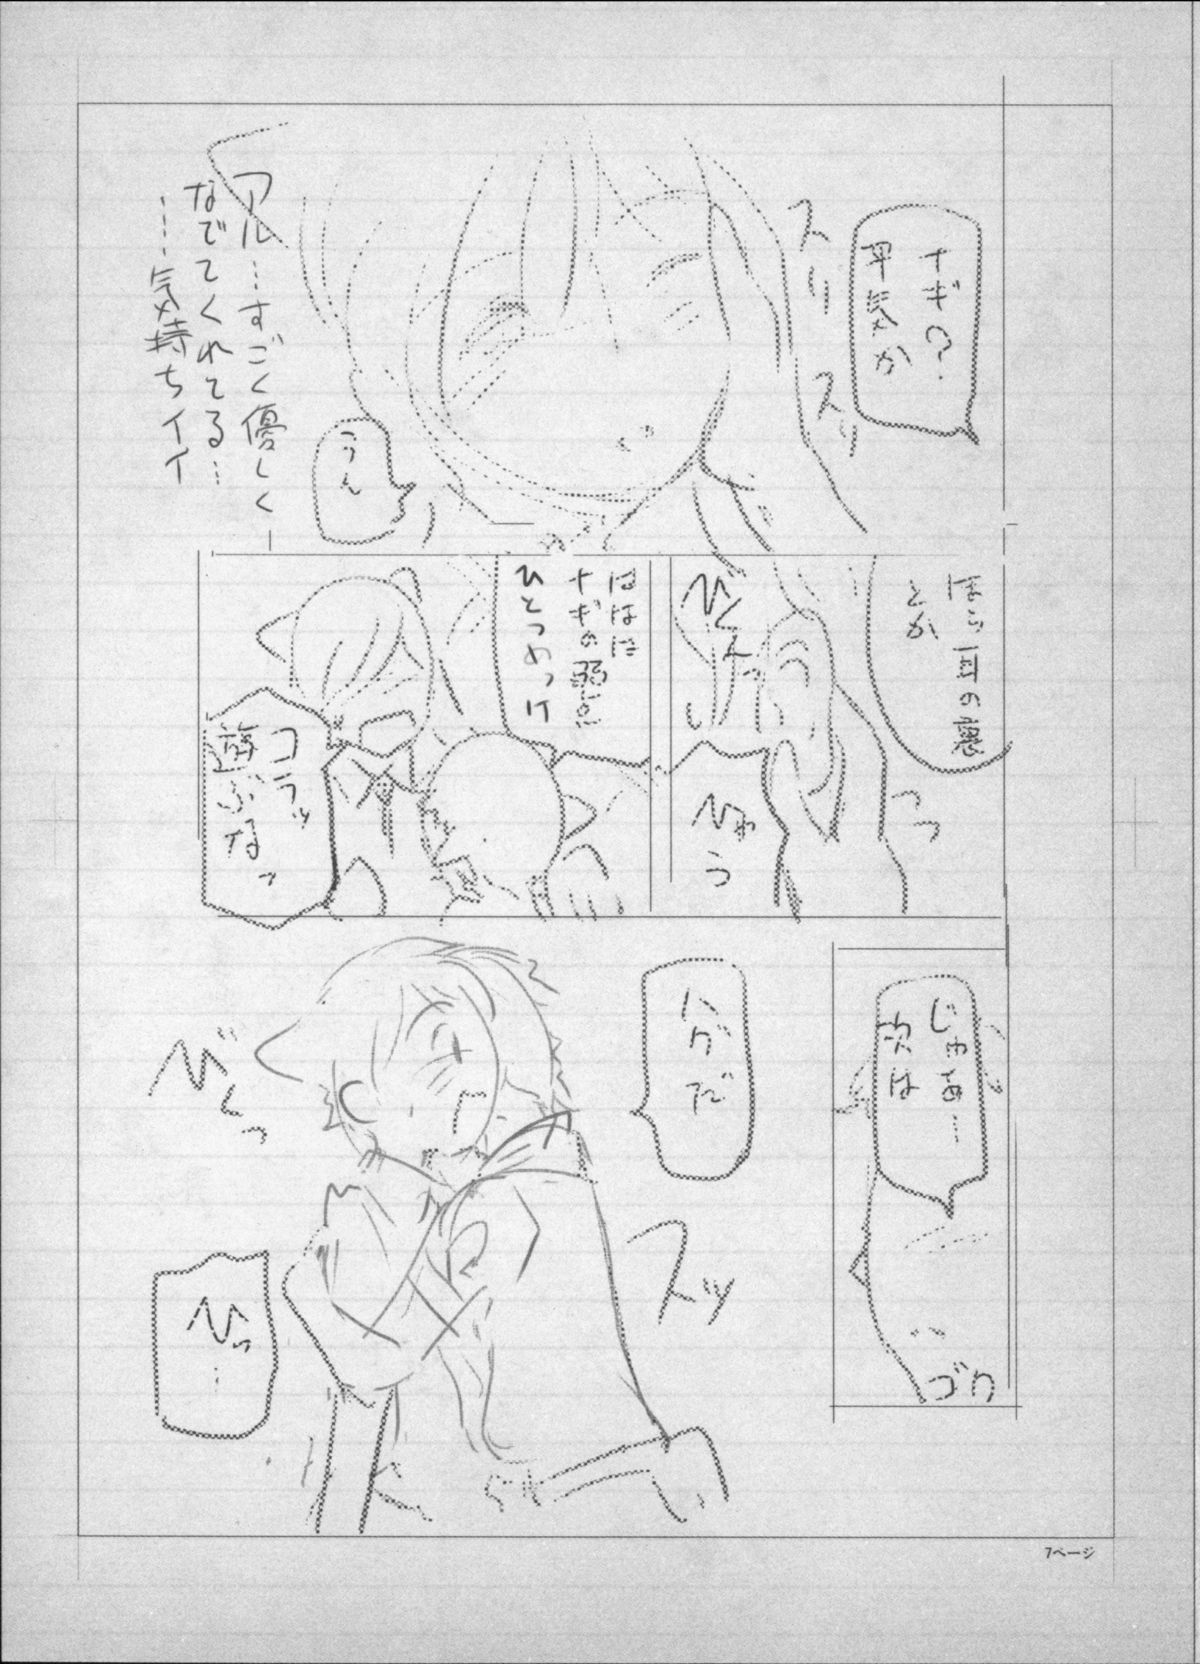 ナギ?
平気か
スリ
スリ
うん
アル…すごく優しく
なでてくれてる…
……気持ちイイ
とか
びくんっ
ひゃう
ははは
ナギの弱点
ひとつめっけ
コラッ
遊ぶなっ
じゃあ…
次は
ゴク
ハグだ
スッ
びくっ
ひっ…
7ページ